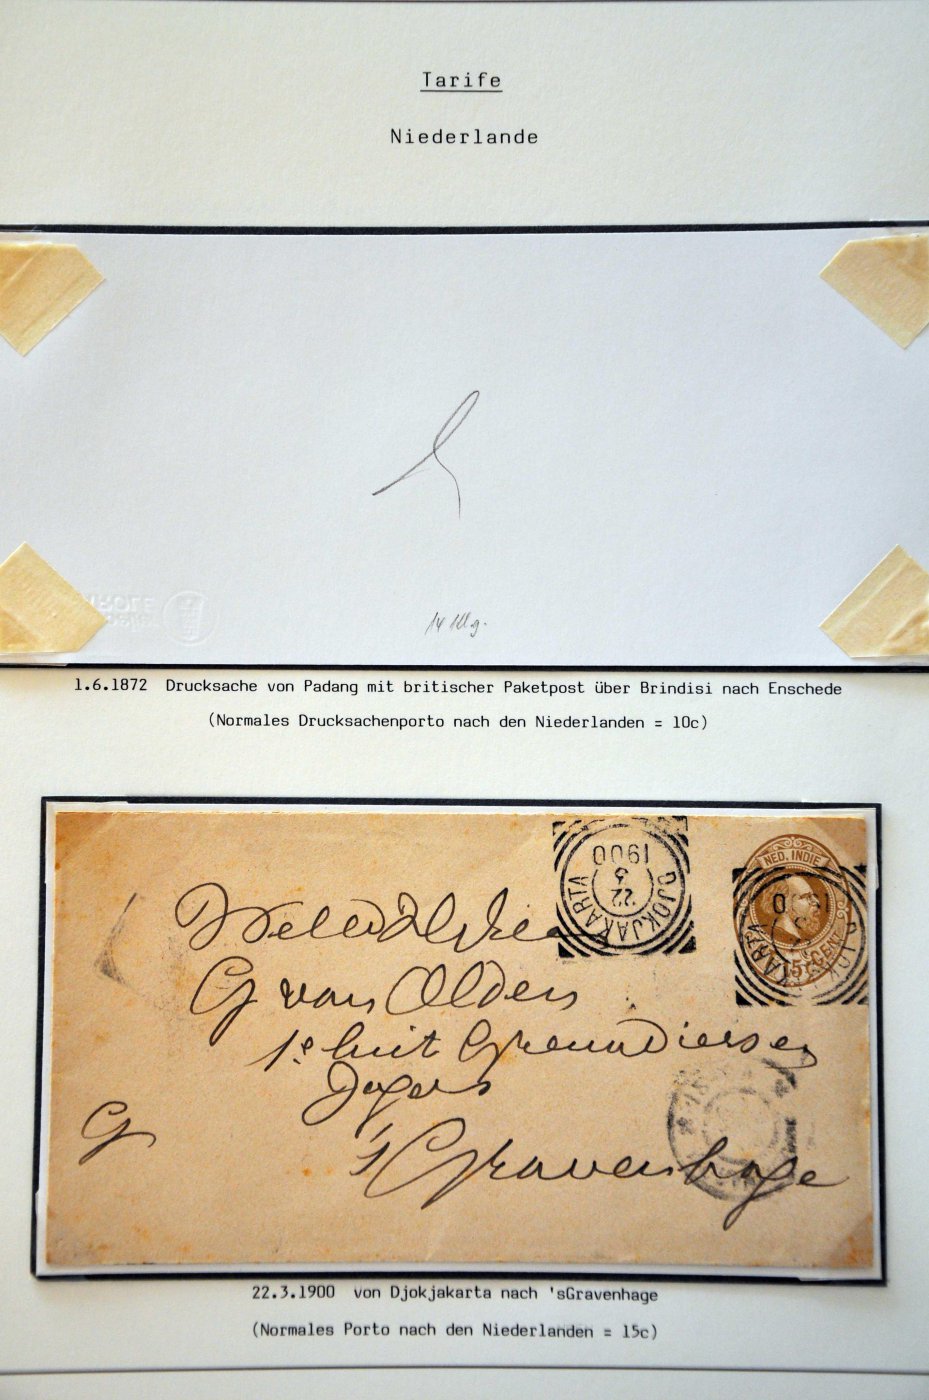 Tarife
Niederlande
14 Kl g.
1.6.1872 Drucksache von Padang mit britischer Paketpost über Brindisi nach Enschede
(Normales Drucksachenporto nach den Niederlanden = 10c)
DJOKJAKARTA
22
3
1900
NED. INDIE
15 CENT
G van Olden
1e luit Grenadiers en
Jagers
G
's Gravenhage
22.3.1900 von Djokjakarta nach 'sGravenhage
(Normales Porto nach den Niederlanden = 15c)